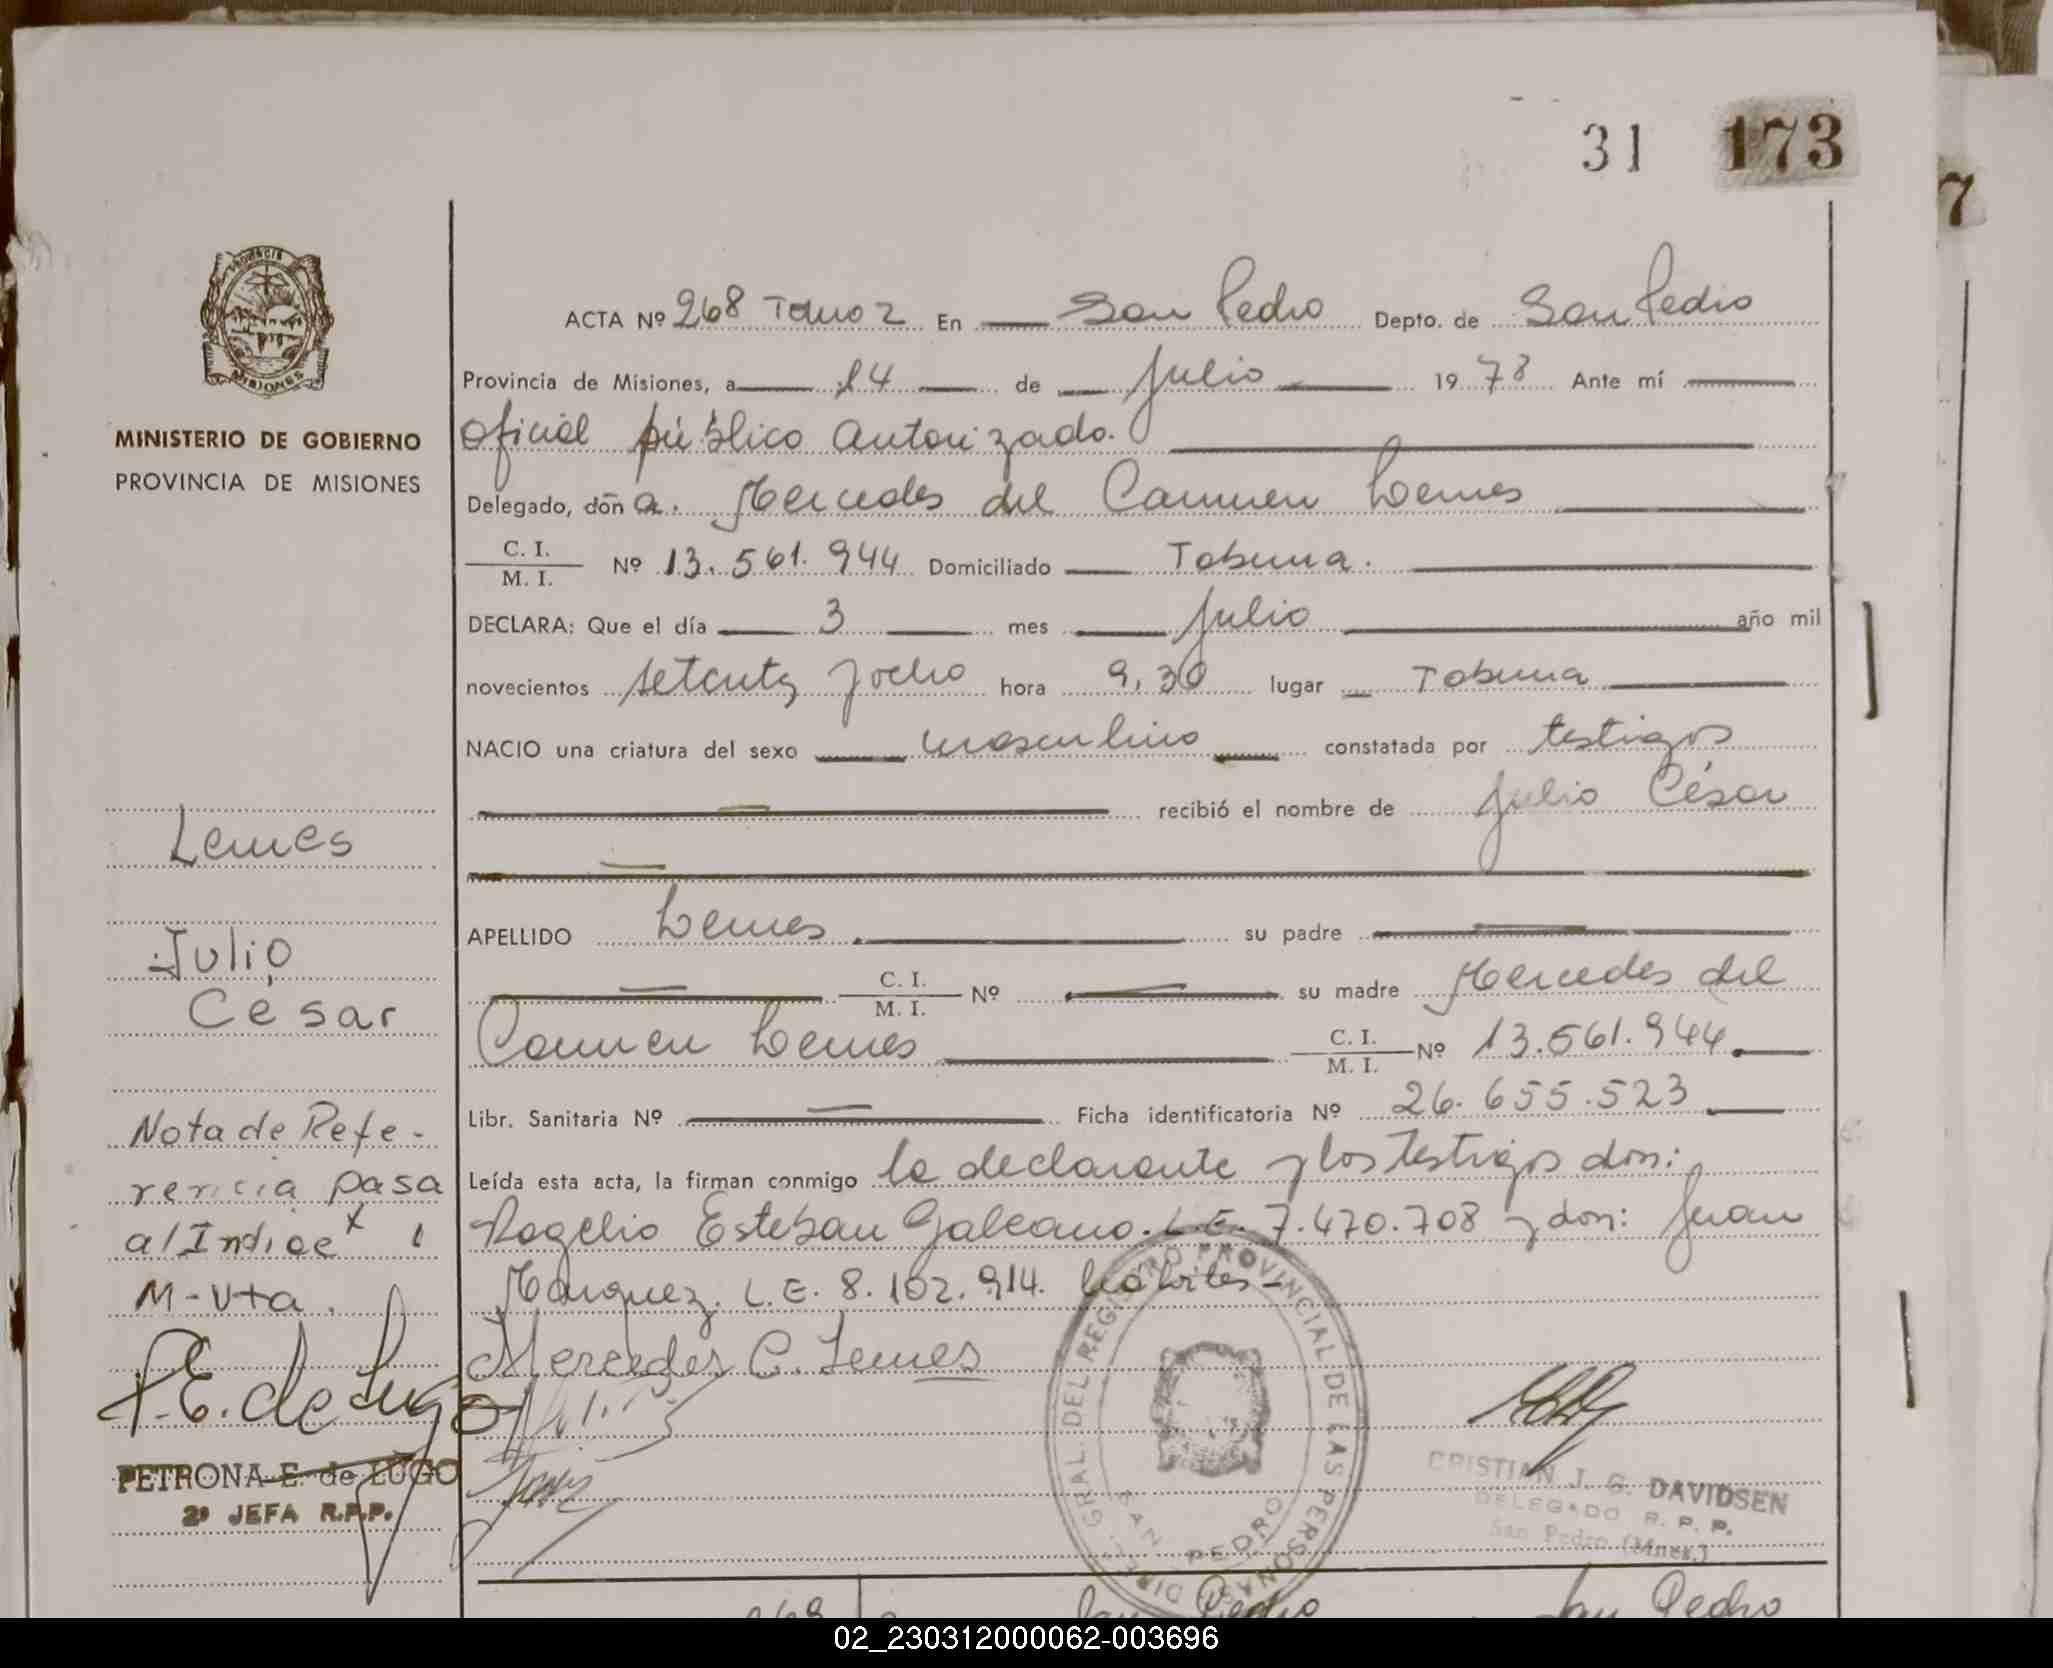 31 173
7
PROVINCIA
MISIONES
MINISTERIO DE GOBIERNO
PROVINCIA DE MISIONES
ACTA Nº 268 Tomo 2 En San Pedro Depto. de San Pedro
Provincia de Misiones, a 14 de Julio 1978 Ante mí
Oficial público Autorizado.
Delegado, doña. Mercedes del Carmen Lemes
C. I. / M. I. Nº 13.561.944 Domiciliado Tobuna.
DECLARA: Que el día 3 mes Julio año mil
novecientos setenta y ocho hora 9,30 lugar Tobuna
NACIO una criatura del sexo masculino constatada por testigos
recibió el nombre de Julio César
APELLIDO Lemes su padre
C. I. / M. I. Nº su madre Mercedes del
Carmen Lemes C. I. / M. I. Nº 13.561.944
Libr. Sanitaria Nº Ficha identificatoria Nº 26.655.523
Leída esta acta, la firman conmigo la declarante y los testigos don:
Rogelio Esteban Galeano. L.E. 7.470.708 y don: Juan
Marquez. L.E. 8.102.914. hábiles-
Mercedes C. Lemes
Lemes
Julio
César
Nota de Refe-
rencia pasa
al Indice
M-Vta.
P.E. de Lugo
PETRONA E. de LUGO
2º JEFA R.P.P.
DIR. GRAL. DEL REGISTRO PROVINCIAL DE LAS PERSONAS
SAN PEDRO
CRISTIAN J. G. DAVIDSEN
DELEGADO R. P. P.
San Pedro (Mnes.)
269 San Pedro San Pedro
02_230312000062-003696